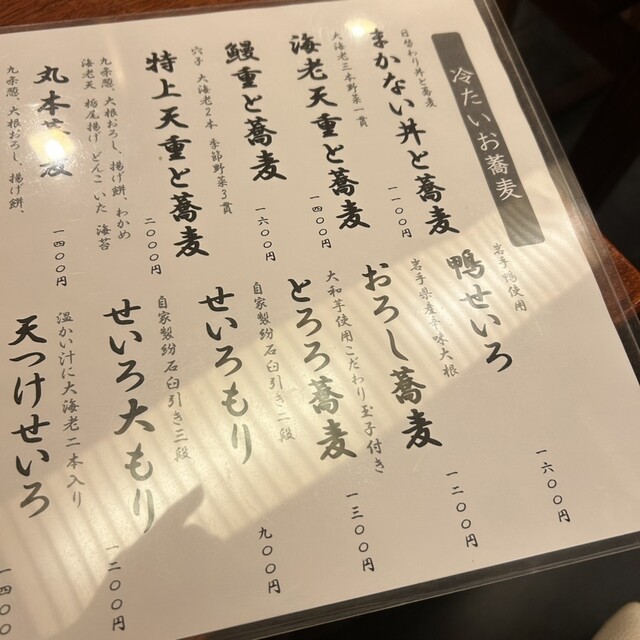 冷たいお蕎麦
日替わり丼と蕎麦
まかない丼と蕎麦
一一〇〇円
大海老三本野菜一貫
海老天重と蕎麦
一四〇〇円
鰻重と蕎麦
一六〇〇円
穴子 大海老2本 季節野菜3貫
特上天重と蕎麦
二〇〇〇円
九条葱、大根おろし、揚げ餅、わかめ
海老天 栃尾揚げ どんこ いた 海苔
丸本蕎麦
一四〇〇円
九条葱、大根おろし、揚げ餅、
岩手鴨使用
鴨せいろ
一六〇〇円
岩手県産辛味大根
おろし蕎麦
一二〇〇円
大和芋使用こだわり玉子付き
とろろ蕎麦
一三〇〇円
自家製粉石臼引き二段
せいろもり
九〇〇円
自家製粉石臼引き三段
せいろ大もり
一二〇〇円
温かい汁に大海老二本入り
天つけせいろ
一四〇〇